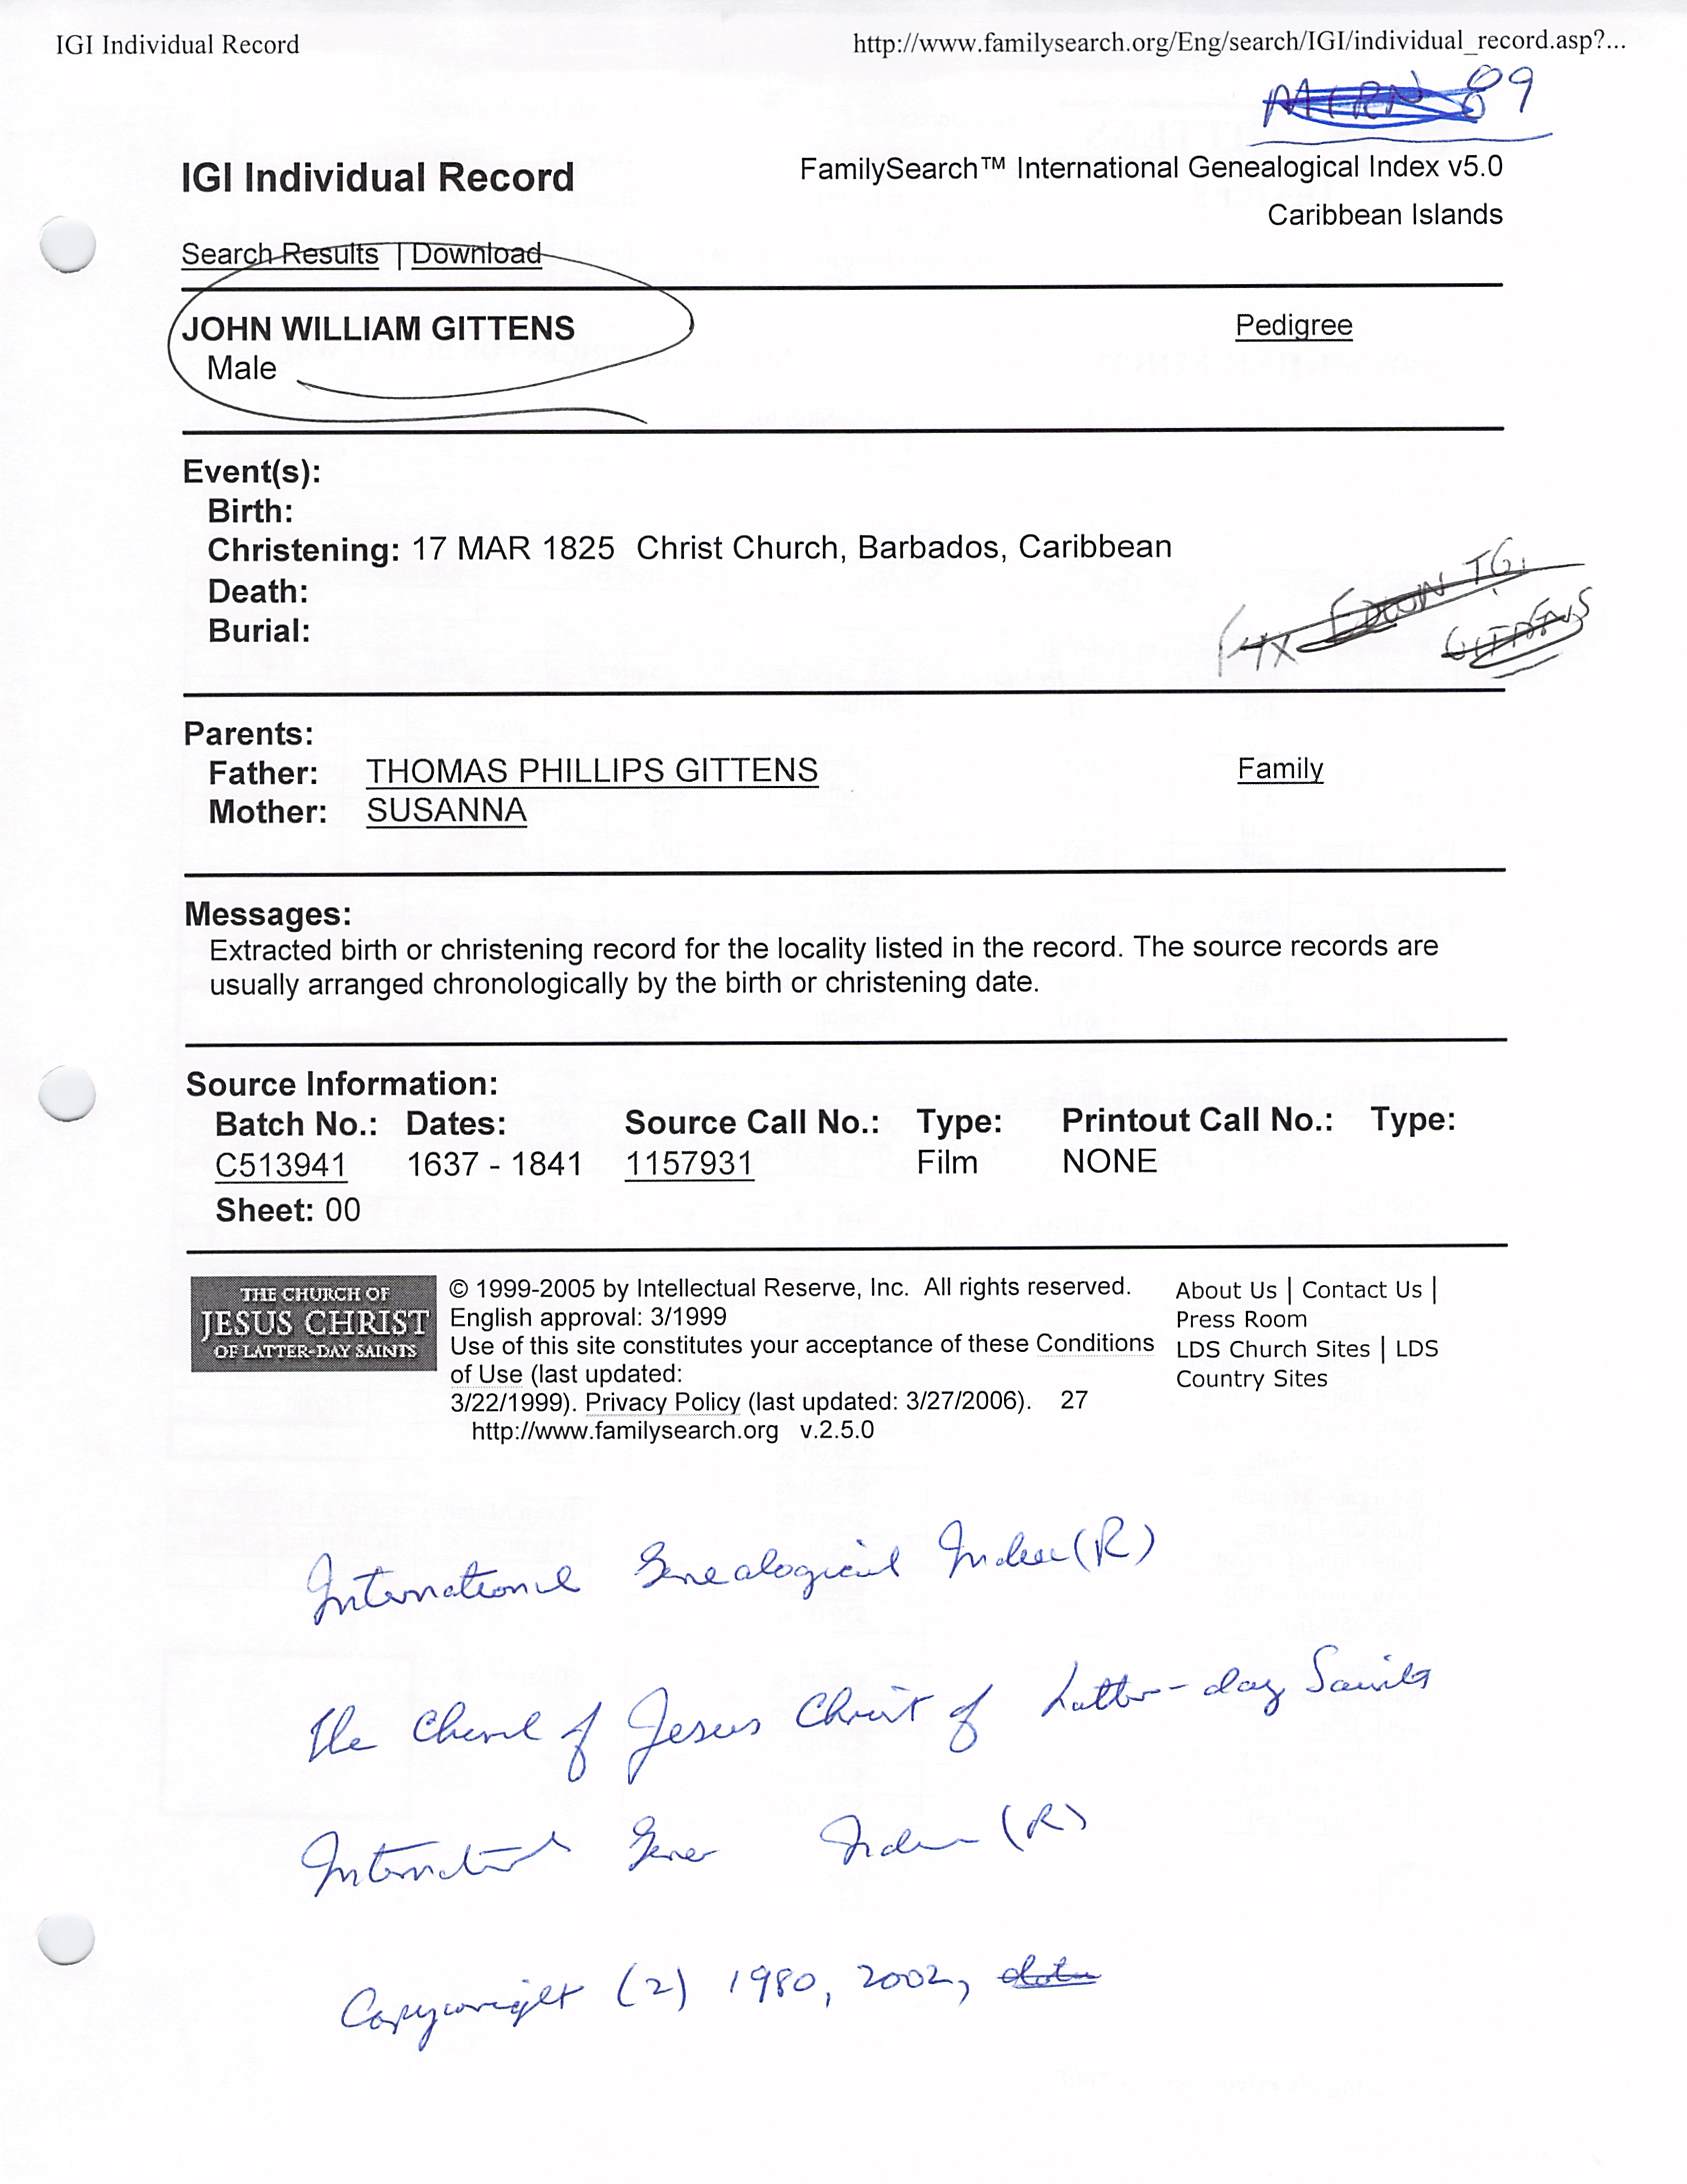 IGI Individual Record http://www.familysearch.org/Eng/search/IGI/individual_record.asp?...
MIRN 89
IGI Individual Record FamilySearch™ International Genealogical Index v5.0
Caribbean Islands
Search Results | Download
JOHN WILLIAM GITTENS Pedigree
Male
Event(s):
Birth:
Christening: 17 MAR 1825 Christ Church, Barbados, Caribbean
Death:
Burial:
IGI
GITTENS
Parents:
Father: THOMAS PHILLIPS GITTENS Family
Mother: SUSANNA
Messages:
Extracted birth or christening record for the locality listed in the record. The source records are
usually arranged chronologically by the birth or christening date.
Source Information:
Batch No.: Dates: Source Call No.: Type: Printout Call No.: Type:
C513941 1637 - 1841 1157931 Film NONE
Sheet: 00
THE CHURCH OF
JESUS CHRIST
OF LATTER-DAY SAINTS
© 1999-2005 by Intellectual Reserve, Inc. All rights reserved.
English approval: 3/1999
Use of this site constitutes your acceptance of these Conditions
of Use (last updated:
3/22/1999). Privacy Policy (last updated: 3/27/2006). 27
http://www.familysearch.org v.2.5.0
About Us | Contact Us |
Press Room
LDS Church Sites | LDS
Country Sites
International Genealogical Index (R)
The Church of Jesus Christ of Latter-day Saints
International Gener Index (R)
Copywright (2) 1980, 2002,